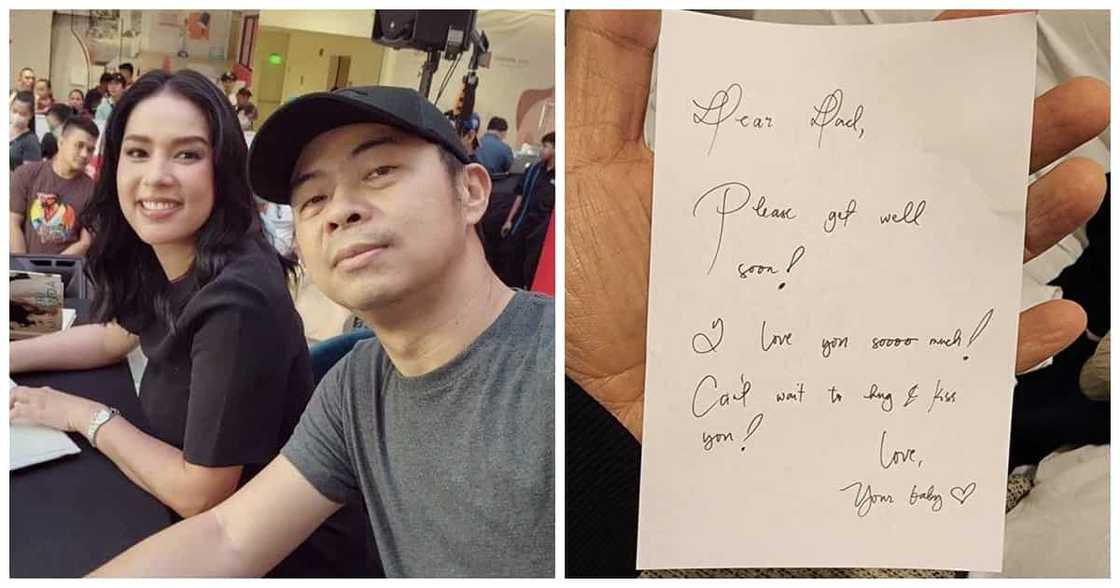 Dear Dad,
Please get well
soon!
I love you soooo much!
Can't wait to hug & kiss
you!
Love,
Your baby ♡